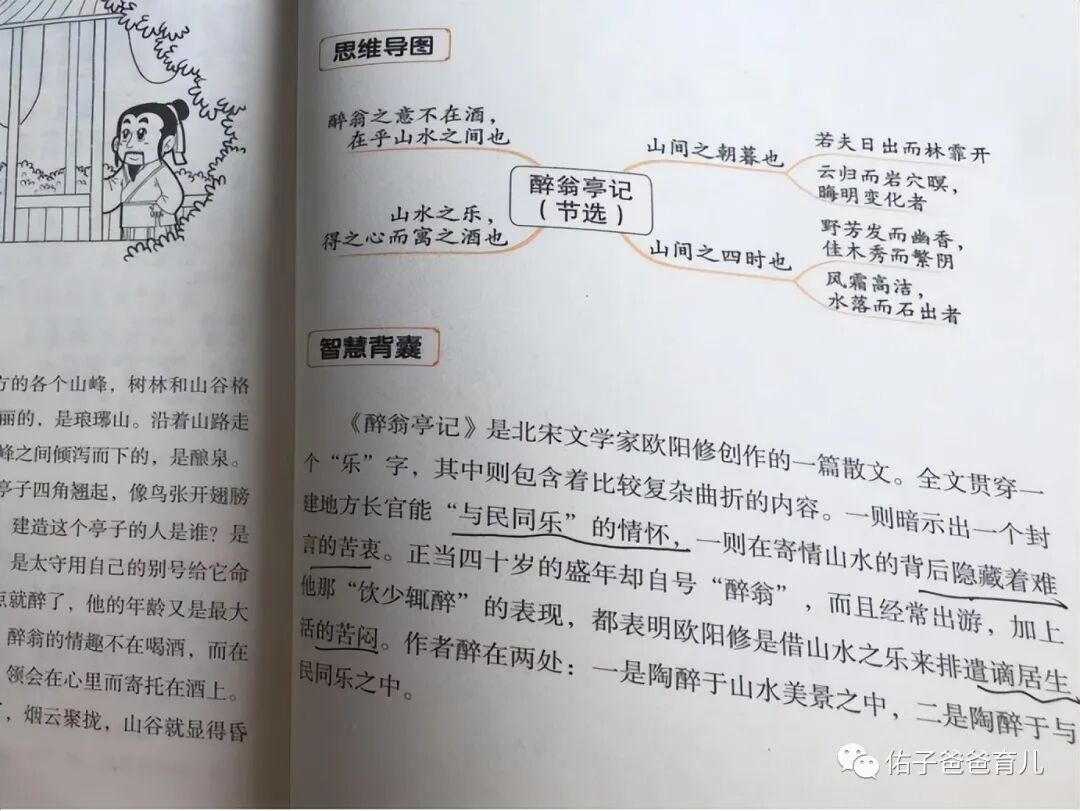 方的各个山峰，树林和山谷格
丽的，是琅琊山。沿着山路走
峰之间倾泻而下的，是酿泉。
亭子四角翘起，像鸟张开翅膀
建造这个亭子的人是谁？是
是太守用自己的别号给它命
点就醉了，他的年龄又是最大
醉翁的情趣不在喝酒，而在
领会在心里而寄托在酒上。
，烟云聚拢，山谷就显得昏
思维导图
醉翁之意不在酒，
在乎山水之间也
山水之乐，
得之心而寓之酒也
醉翁亭记
（节选）
山间之朝暮也
若夫日出而林霏开
云归而岩穴暝，
晦明变化者
山间之四时也
野芳发而幽香，
佳木秀而繁阴
风霜高洁，
水落而石出者
智慧背囊
《醉翁亭记》是北宋文学家欧阳修创作的一篇散文。全文贯穿一
个“乐”字，其中则包含着比较复杂曲折的内容。一则暗示出一个封
建地方长官能“与民同乐”的情怀，一则在寄情山水的背后隐藏着难
言的苦衷。正当四十岁的盛年却自号“醉翁”，而且经常出游，加上
他那“饮少辄醉”的表现，都表明欧阳修是借山水之乐来排遣谪居生
活的苦闷。作者醉在两处：一是陶醉于山水美景之中，二是陶醉于与
民同乐之中。
佑子爸爸育儿